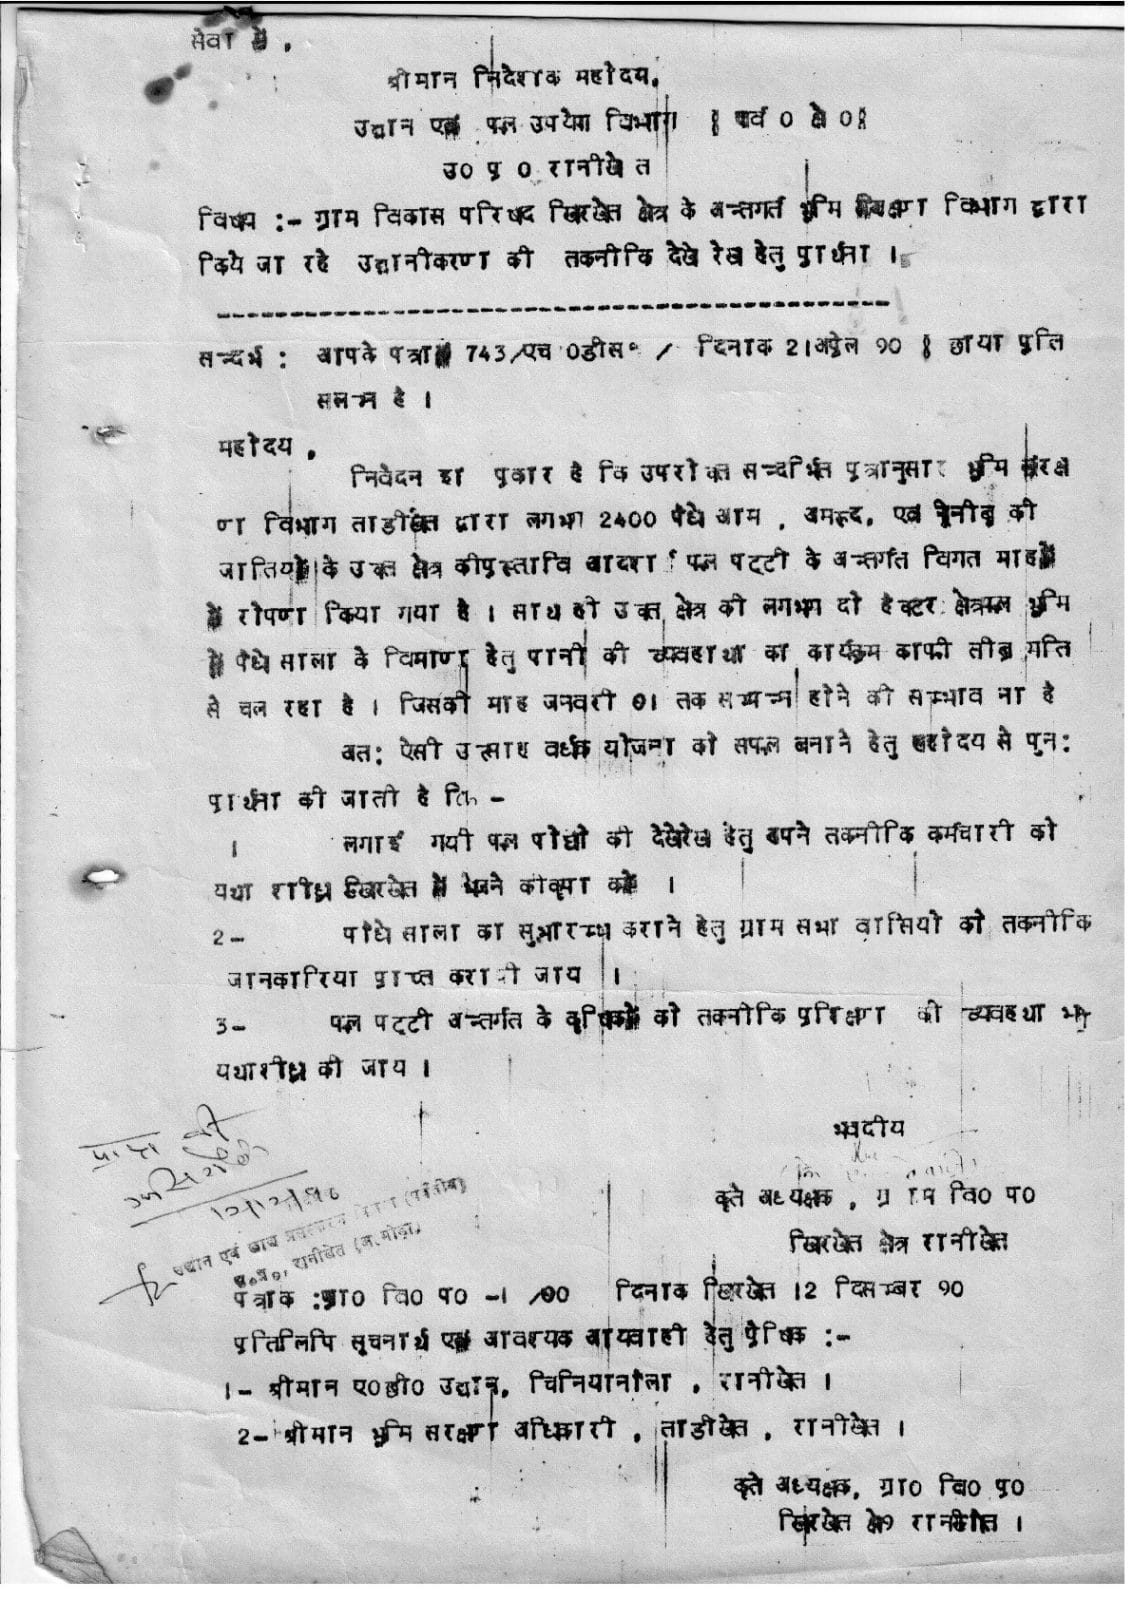 सेवा में,
श्रीमान निदेशक महोदय,
उद्यान एवं फल उपयोग विभाग [ पर्व0 क्षे0]
उ0 प्र0 रानीखेत
विषय :- ग्राम विकास परिषद खिरखेत क्षेत्र के अन्तगर्त भूमि संरक्षण विभाग द्वारा
किये जा रहे उद्यानीकरण की तकनीकि देखे रेख हेतु प्रार्थना ।
सन्दर्भ : आपके पत्रांक 743/एच0डीस0 / दिनांक 21अप्रेल 90 [ छाया प्रति
सलग्न है ।
महोदय,
निवेदन इस प्रकार है कि उपरोक्त सन्दर्भित पत्रानुसार भूमि संरक्ष
ण विभाग ताडीखेत द्वारा लगभग 2400 पौधे आम, अमरूद, एवं नीबू की
जातियों के उक्त क्षेत्र की प्रस्तावि आदर्श फल पट्टी के अन्तर्गत विगत माह
में रोपण किया गया है । साथ ही उक्त क्षेत्र की लगभग दो हैक्टर क्षेत्रफल भूमि
में पौधे साला के निमार्ण हेतु पानी की व्यवहाथा का कार्यक्रम काफी तीब्र गति
से चल रहा है । जिसकी माह जनवरी 91 तक सम्पन्न होने की सम्भाव ना है
अत: ऐसी उत्साह वर्धक योजना को सफल बनाने हेतु महोदय से पुन:
प्रार्थना की जाती है कि -
1 लगाई गयी फल पोधो की देखेरेख हेतु अपने तकनीकि कर्मचारी को
यथा शीघ्र खिरखेत में भेजने की कृपा करें ।
2- पौधे साला का सुभारम्भ कराने हेतु ग्राम सभा वासियो को तकनीकि
जानकारिया प्राप्त करायी जाय ।
3- फल पट्टी अन्तर्गत के कृषिकों को तकनीकि प्रशिक्षण की व्यवहथा भी
यथाशीघ्र की जाय ।
भवदीय
कृते अध्यक्षक, ग्राम वि0 प0
खिरखेत क्षेत्र रानीखेत
प्राप्त की
12/12/90
उद्यान एवं खाद्य प्रसंस्करण विभाग (पर्वतीय)
उ०प्र०, रानीखेत (अल्मोड़ा)
पत्रांक :ग्रा0 वि0 प0 -1 /90 दिनांक खिरखेत 12 दिसम्बर 90
प्रतिलिपि सूचनार्थ एवं आवश्यक कायवाही हेतु प्रेषिक :-
1- श्रीमान ए0डी0 उद्यान, चिनियानौला, रानीखेत ।
2- श्रीमान भूमि सरक्षण अधिकारी, ताडीखेत, रानीखेत ।
कृते अध्यक्षक, ग्रा0 वि0 प0
खिरखेत क्षे0 रानीखेत ।